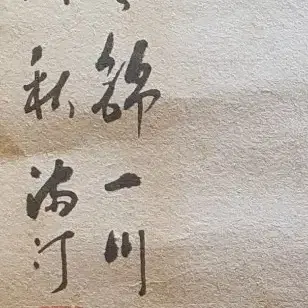 錦一川
秋満汀